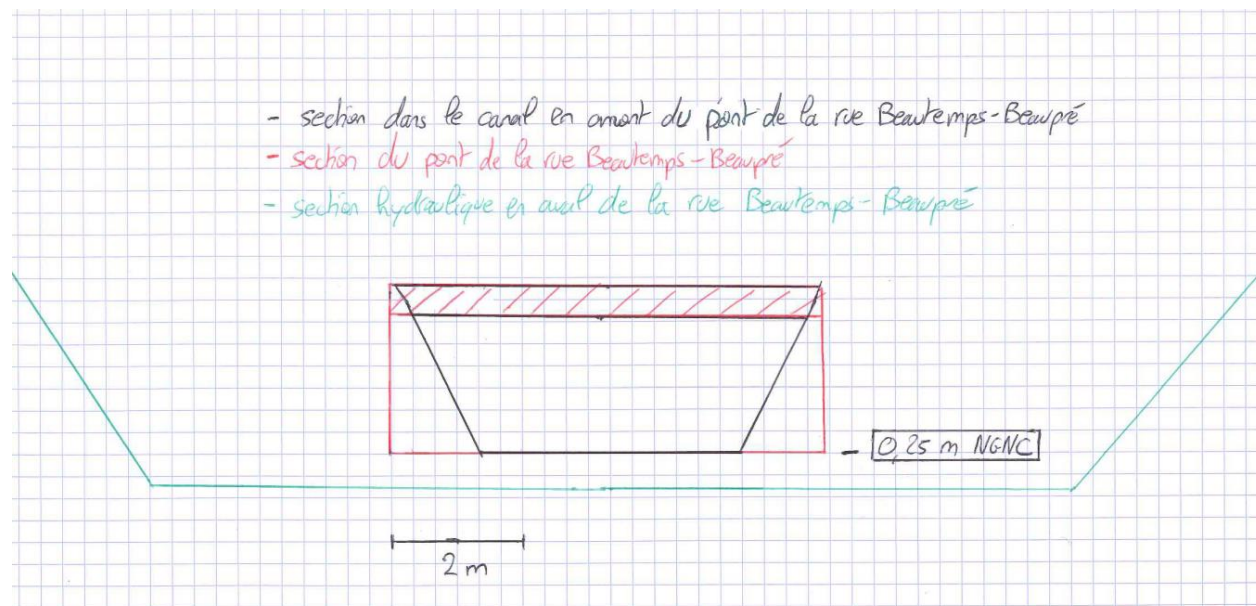 - section dans le canal en amont du pont de la rue Beautemps-Beaupré
- section du pont de la rue Beautemps-Beaupré
- section hydraulique en aval de la rue Beautemps-Beaupré
- 0,25 m NGNC
2 m